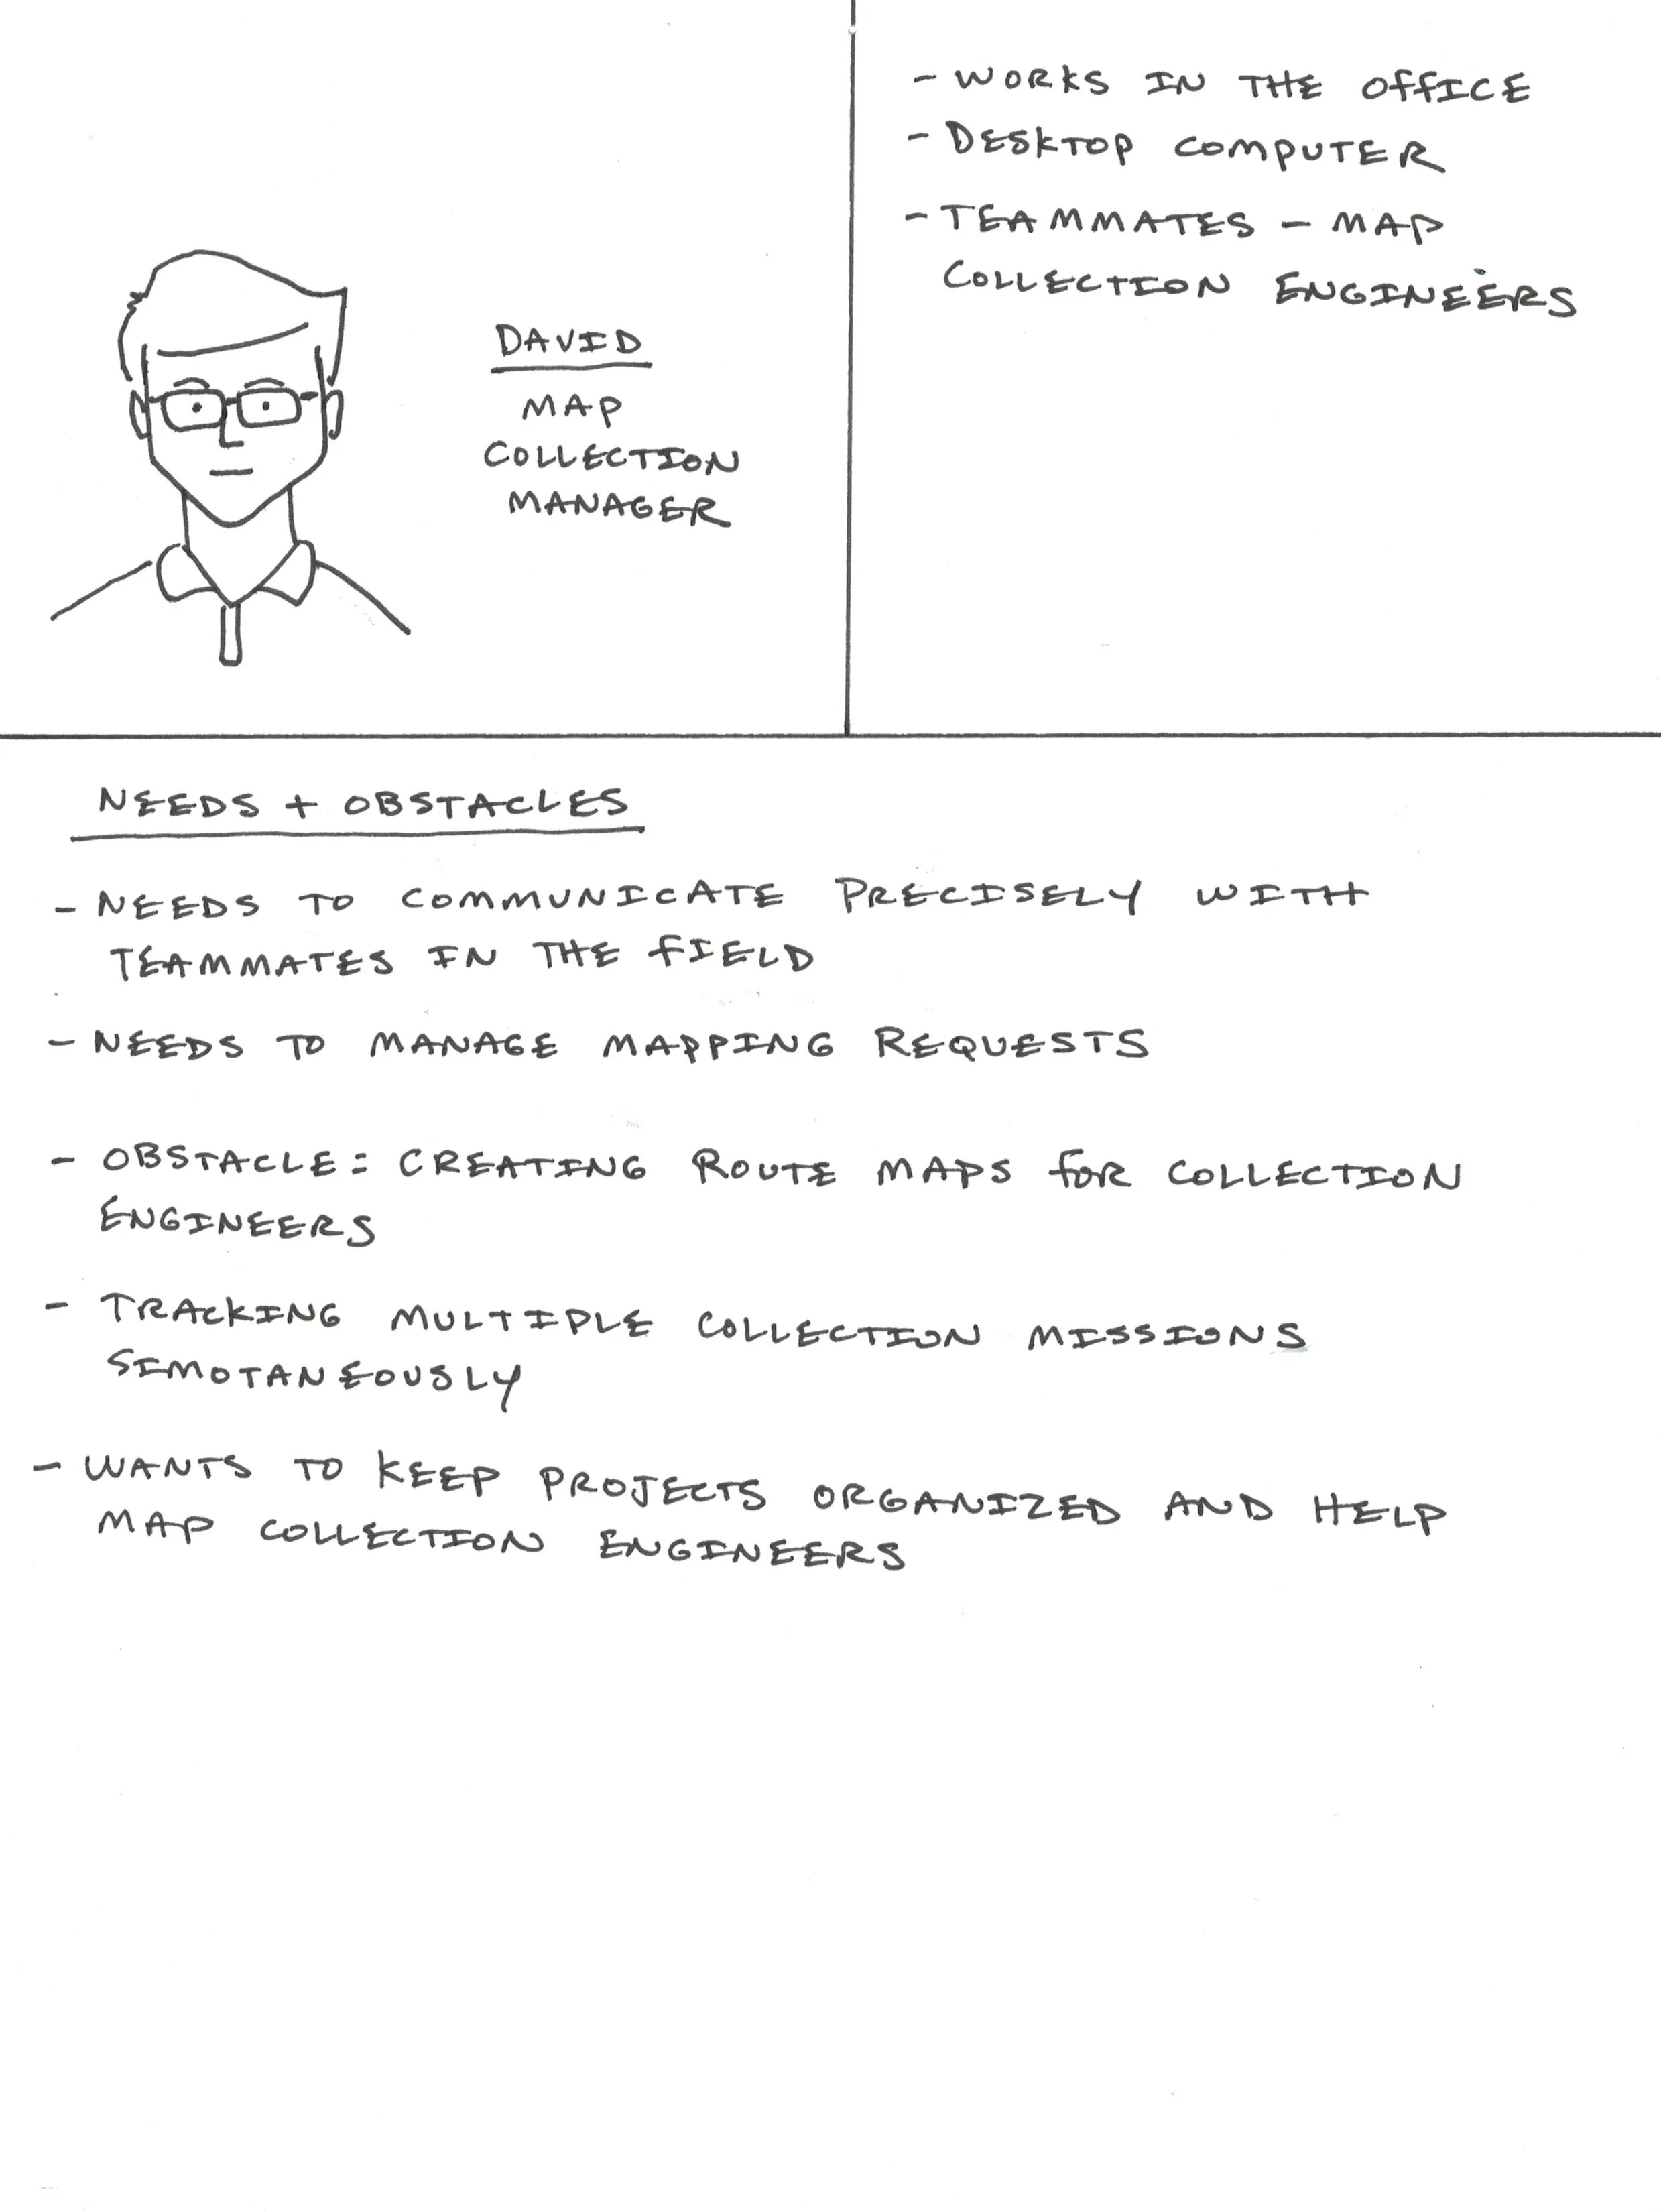 DAVID
MAP
COLLECTION
MANAGER
- WORKS IN THE OFFICE
- DESKTOP COMPUTER
- TEAMMATES - MAP
COLLECTION ENGINEERS
NEEDS + OBSTACLES
- NEEDS TO COMMUNICATE PRECISELY WITH
TEAMMATES IN THE FIELD
- NEEDS TO MANAGE MAPPING REQUESTS
- OBSTACLE: CREATING ROUTE MAPS FOR COLLECTION
ENGINEERS
- TRACKING MULTIPLE COLLECTION MISSIONS
SIMOTANEOUSLY
- WANTS TO KEEP PROJECTS ORGANIZED AND HELP
MAP COLLECTION ENGINEERS